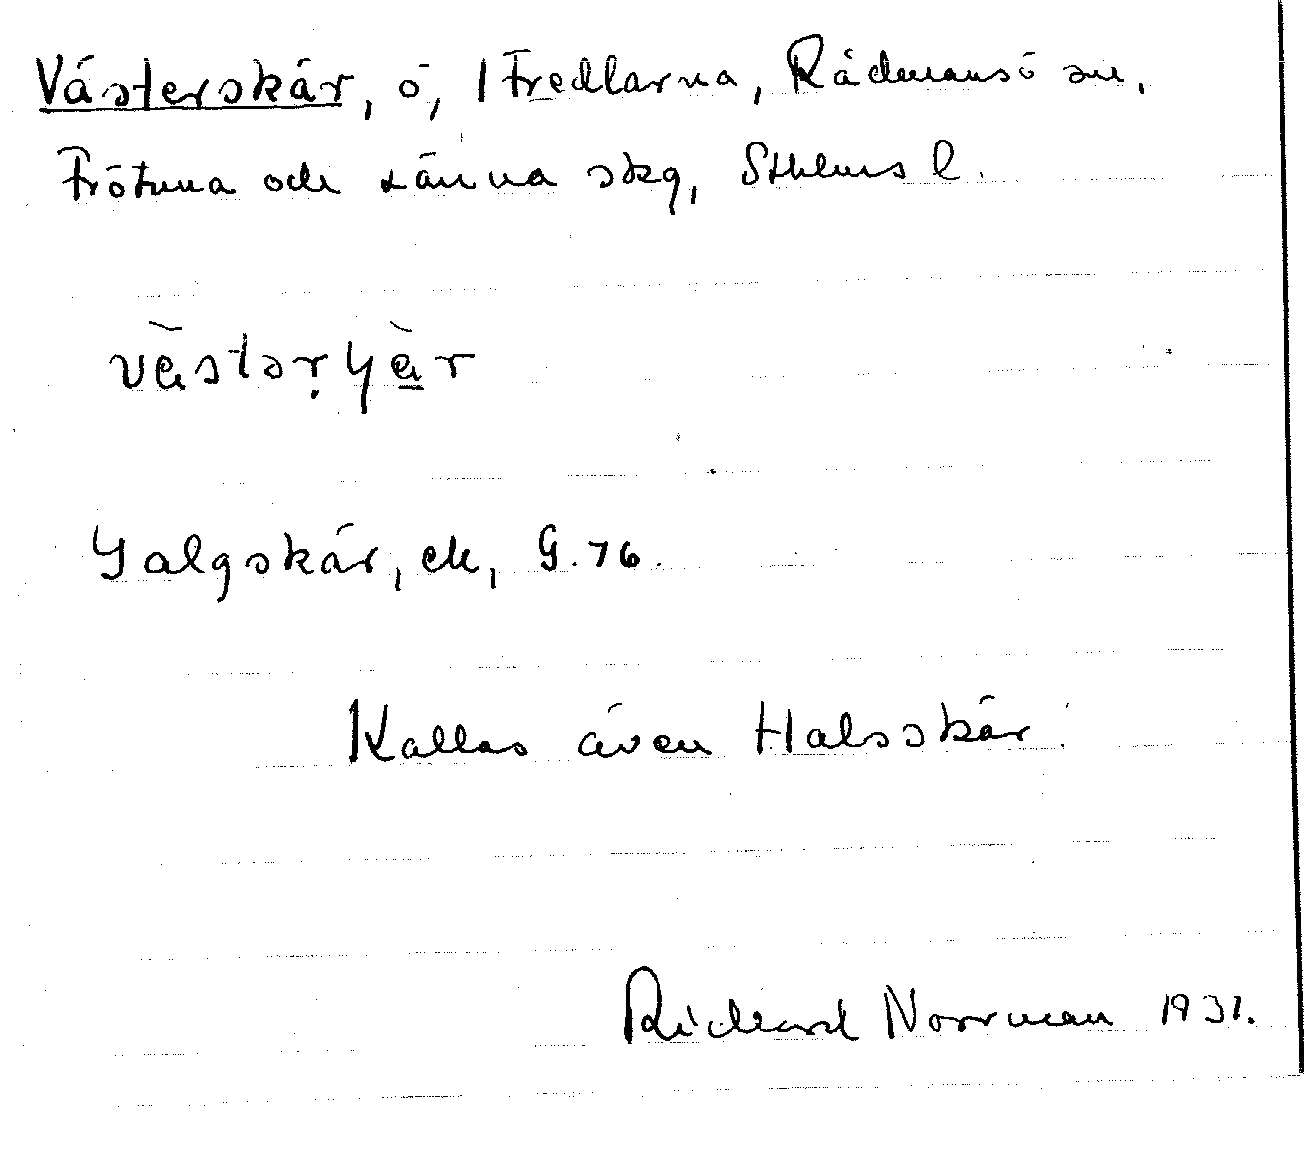 Västerskär, ö, i Fredlarna, Rådmansö sn,
Frötuna och Länna skg, Sthlms l.
Galgskär, ek, G. 76.
Kallas även Halsskär.
Richard Norrman 1931.